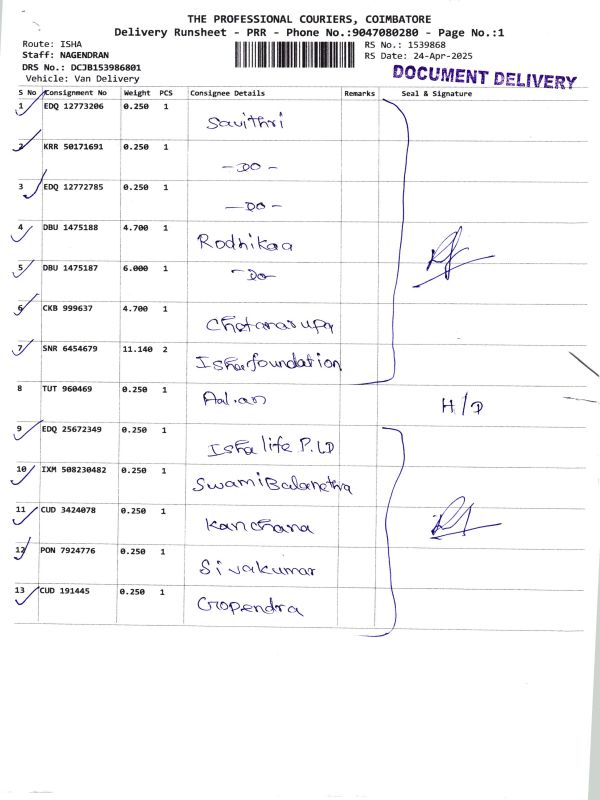 THE PROFESSIONAL COURIERS, COIMBATORE
Delivery Runsheet - PRR - Phone No.:9047080280 - Page No.:1
Route: ISHA
Staff: NAGENDRAN
DRS No.: DCJB153986801
Vehicle: Van Delivery
RS No.: 1539868
RS Date: 24-Apr-2025
DOCUMENT DELIVERY
S No Consignment No Weight PCS Consignee Details Remarks Seal & Signature
1 EDQ 12773206 0.250 1 Savithri
2 KRR 50171691 0.250 1 -DO-
3 EDQ 12772785 0.250 1 -DO-
4 DBU 1475188 4.700 1 Rodhikaa
5 DBU 1475187 6.000 1 -DO-
6 CKB 999637 4.700 1
7 SNR 6454679 11.140 2 Isha foundation
8 TUT 960469 0.250 1 H/D
9 EDQ 25672349 0.250 1 Isha life P.LD
10 IXM 508230482 0.250 1 Swami Balanetra
11 CUD 3424078 0.250 1 Kanchana
12 PON 7924776 0.250 1 Sivakumar
13 CUD 191445 0.250 1 Gopendra